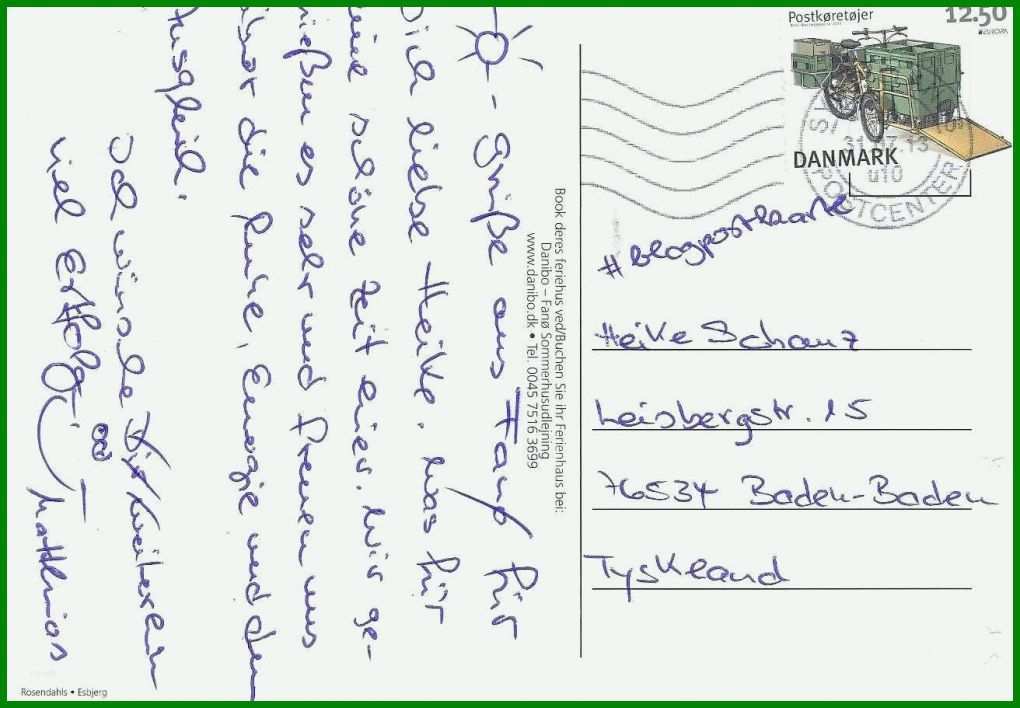 - Grüße aus Fanø für
Dich liebe Heike. Was für
eine schöne Zeit hier. Wir ge-
nießen es sehr und freuen uns
über die Ruhe, Energie und den
Ausgleich.
Ich wünsche Dir weiterhin
viel Erfolg!
Matthias
Book deres feriehus ved/Buchen Sie ihr Ferienhaus bei:
Danibo – Fanø Sommerhusudlejning
www.danibo.dk • Tel. 0045 7516 3699
Postkøretøjer
12.50
EUROPA
DANMARK
31.07.13
u10
POSTCENTER
#blogpostkarte
Heike Schanz
Leisbergstr. 15
76534 Baden-Baden
Tyskland
Rosendahls • Esbjerg